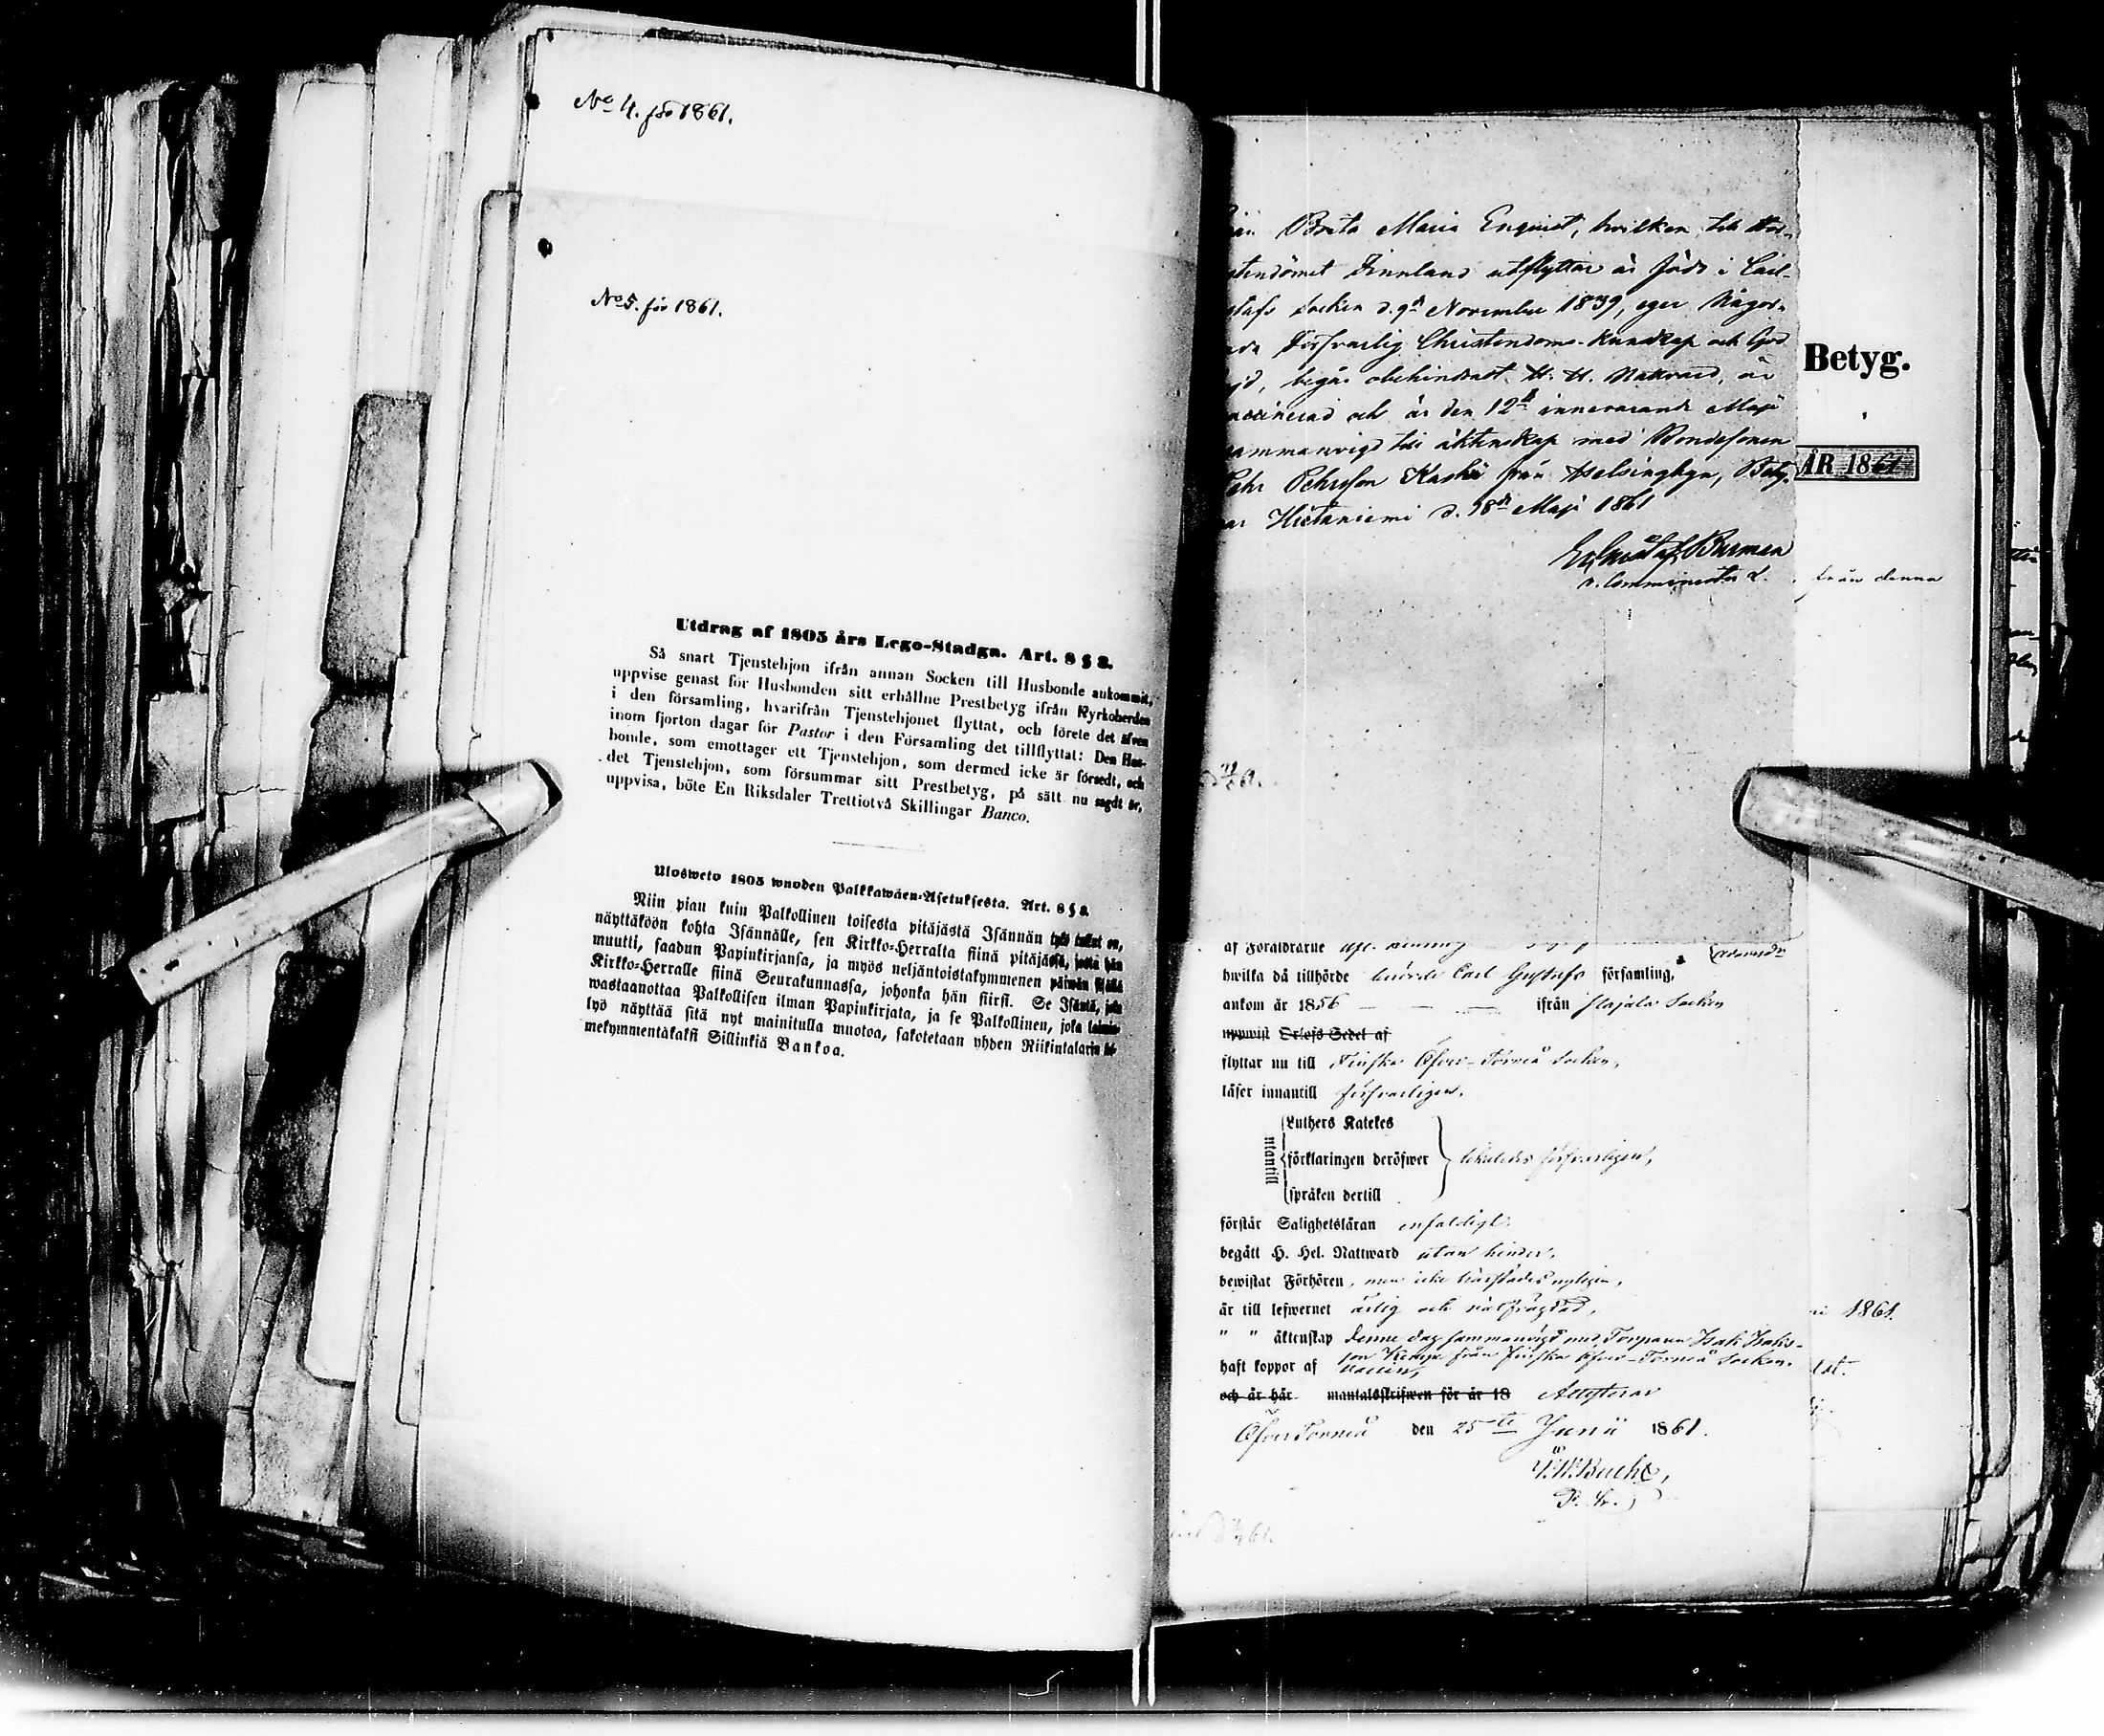 No 4. för 1861.
No 5. för 1861.
Utdrag af 1805 års Lego-Stadga. Art. 8 § 3.
Så snart Tjenstehjon ifrån annan Socken till Husbonde ankommit,
uppvise genast för Husbonden sitt erhållne Prestbetyg ifrån Kyrkoherden
i den församling, hvarifrån Tjenstehjonet flyttat, och förete det äfven
inom fjorton dagar för Pastor i den Församling det tillflyttat: Den Hus-
bonde, som emottager ett Tjenstehjon, som dermed icke är försedt, och
det Tjenstehjon, som försummar sitt Prestbetyg, på sätt nu sagdt är,
uppvisa, böte En Riksdaler Trettiotvå Skillingar Banco.
Ulosweto 1805 wuoden Palkkawäen-Asetuksesta. Art. 8 § 3.
Niin pian kuin Palkollinen toisesta pitäjästä Isännän tykö tullut on,
näyttäköön kohta Isännälle, sen Kirkko-Herralta siinä pitäjässä, josta hän
muutti, saadun Papinkirjansa, ja myös neljäntoistakymmenen päiwän sisällä
Kirkko-Herralle siinä Seurakunnassa, johonka hän siirsi. Se Isäntä, joka
wastaanottaa Palkollisen ilman Papinkirjata, ja se Palkollinen, joka laimin-
lyö näyttää sitä nyt mainitulla muotoa, sakotetaan yhden Riikintalarin
mekymmentäkaksi Sillinkiä Bankoa.
Brita Maria Enquist, hvilken till Stor-
stendömet Finnland utflyttar är född i Carl
stafs socken d. 9de November 1839, eger Någor-
Försvarlig Christendoms-Kundskap och God
begår obehindrat H. H. Nattvard, är
vaccinerad och är den 12te innevarande Maji
sammanvigd till äktenskap med Bondesonen
Pehr Pehrsson Kaski från Helsingbyn, Bety-
Hietaniemi d. 18de Maji 1861
Gustaf Burman
v. Comminister
Betyg.
ÅR 1861
från denna
af Föräldrarne
hwilka då tillhörde Carl Gustafs församling,
ankom år 1856 ifrån Pajala Socken
uppwist Orlofs Sedel af
flyttar nu till Finska Öfver-Torneå Socken,
läser innantill försvarligen,
utantill
Luthers Katekes
förklaringen deröfwer likaledes försvarligen,
språken dertill
förstår Salighetsläran enfaldigt.
begått H. Hel. Nattward utan hinder,
bewistat Förhören, men icke härstädes nyligen,
är till lefwernet ärlig och
" " äktenskap denne dag sammanvigd med Torparen Isak Isaks-
son från Finska Öfver-Torneå Socken.
haft koppor af vaccin,
och är här mantalsskrifwen för år 18 Attesterar
ÖfverTorneå den 25te Junii 1861.
Bucht,
1861.